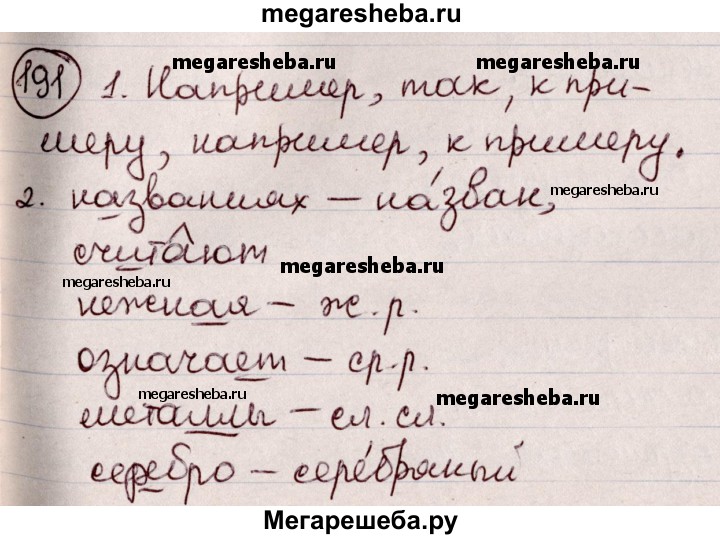 megaresheba.ru
megaresheba.ru megaresheba.ru
191 1. Например, так, к при-
меру, например, к примеру.
2. названиях – на́зван, megaresheba.ru
считают
megaresheba.ru megaresheba.ru
нежная – ж.р.
означает – ср.р.
megaresheba.ru megaresheba.ru
металлы – сл. сл.
серебро – сере́бряный
Мегарешеба.ру